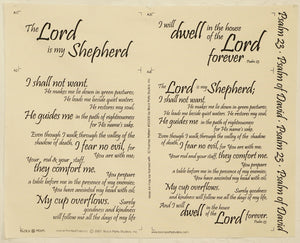 The Lord
is my Shepherd
I will
dwell in the house
of the Lord
forever
Psalm 23
I shall not want.
He makes me lie down in green pastures;
He leads me beside quiet waters,
He restores my soul.
He guides me in the path of righteousness
for His name's sake.
Even though I walk through the valley of the
shadow of death, I fear no evil, for
You are with me;
Your rod & your staff,
they comfort me.
You prepare
a table before me in the presence of my enemies;
You have anointed my head with oil
My cup overflows. Surely
goodness and kindness
will follow me all the days of my life
The Lord is my Shepherd;
I shall not want.
He makes me lie down in green pastures;
He leads me beside quiet waters;
He restores my soul.
He guides me in the path of righteousness
for His name's sake.
Even though I walk through the valley of the
shadow of death, I fear no evil, for
You are with me;
Your rod and your staff,
they comfort me.
You prepare
a table before me in the presence of my enemies;
You have anointed my head with oil
My cup overflows. Surely
goodness and kindness
will follow me all the days of my life.
And I will
dwell in the house
of the Lord
forever.
Psalm 23
Psalm 23 · Psalm of David · Psalm 23 · Psalm of David